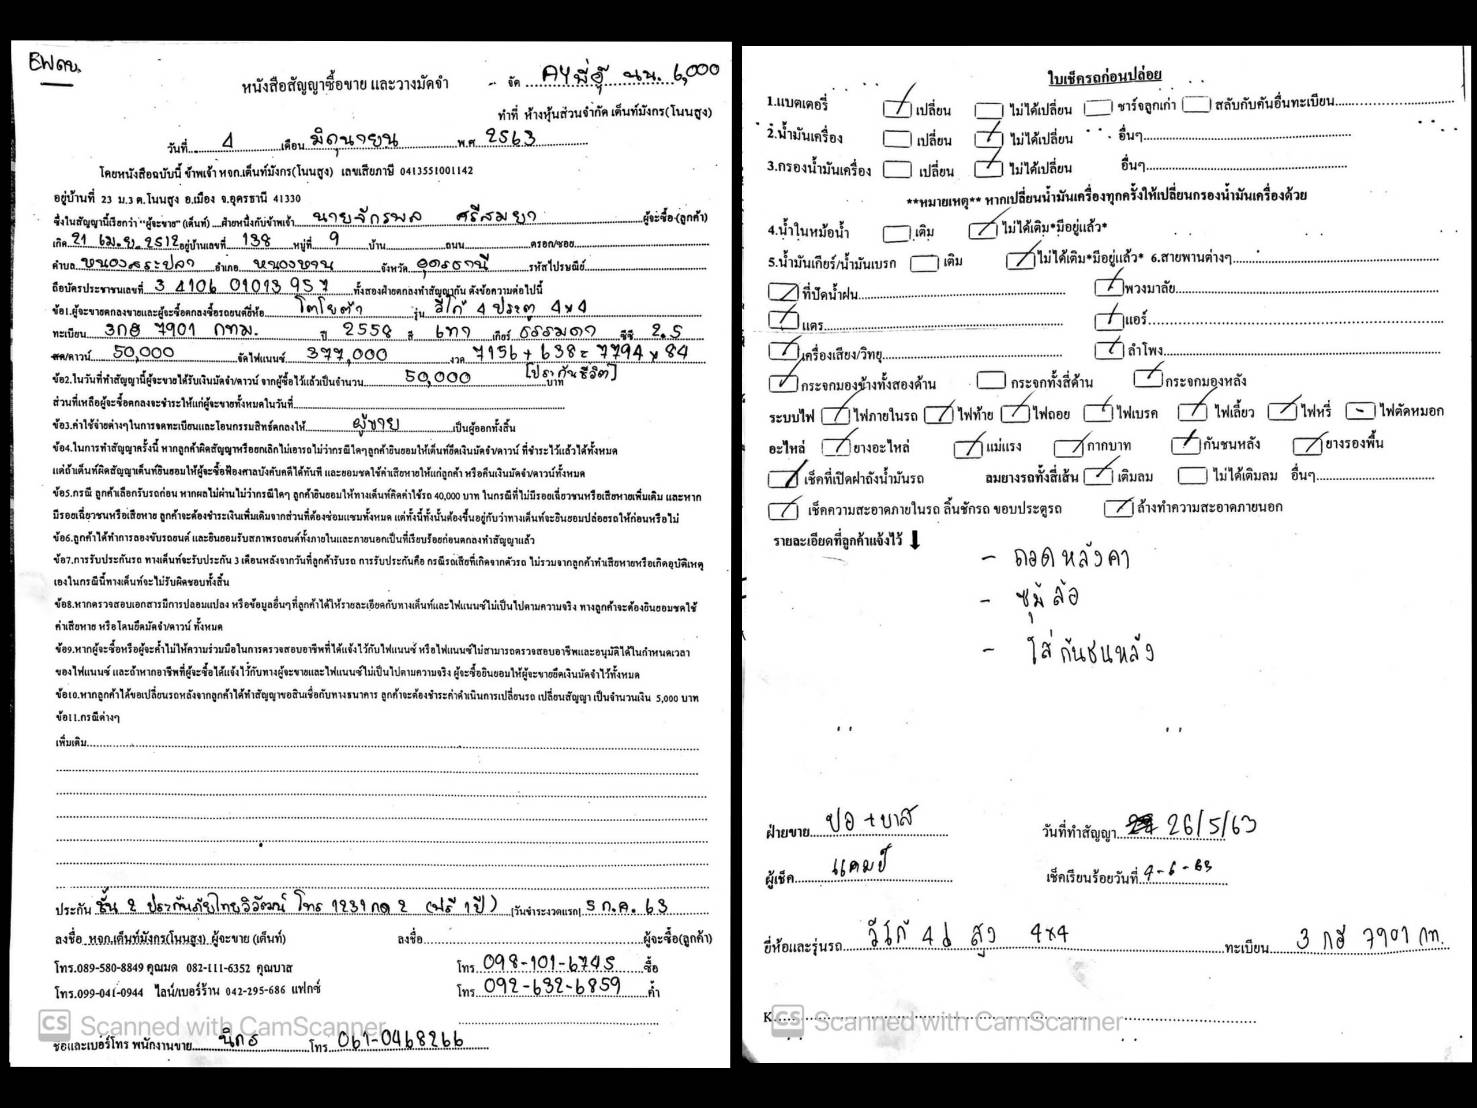 EWดบ.
หนังสือสัญญาซื้อขาย และวางมัดจำ - จัด AYพี่อู๊ นน. 6,000
ทำที่ ห้างหุ้นส่วนจำกัด เต็นท์มังกร(โนนสูง)
วันที่ 4 เดือน มิถุนายน พ.ศ. 2563
โดยหนังสือฉบับนี้ ข้าพเจ้า หจก.เต็นท์มังกร(โนนสูง) เลขเสียภาษี 0413551001142
อยู่บ้านที่ 23 ม.3 ต.โนนสูง อ.เมือง จ.อุดรธานี 41330
ซึ่งในสัญญานี้เรียกว่า "ผู้จะขาย" (เต็นท์) ฝ่ายหนึ่งกับข้าพเจ้า นายจักรพล ศรีสมยา ผู้จะซื้อ (ลูกค้า)
เกิด 21 เม.ย. 2512 อยู่บ้านเลขที่ 138 หมู่ที่ 9 บ้าน ถนน ตรอก/ซอย
ตำบล หนองสระปลา อำเภอ หนองหาน จังหวัด อุดรธานี รหัสไปรษณีย์
ถือบัตรประชาชนเลขที่ 3 4106 01013 95 7 ทั้งสองฝ่ายตกลงทำสัญญากัน ดังข้อความต่อไปนี้
ข้อ1.ผู้จะขายตกลงขายและผู้จะซื้อตกลงซื้อรถยนต์ยี่ห้อ โตโยต้า รุ่น วีโก้ 4 ประตู 4x4
ทะเบียน 3กฮ 7901 กทม. ปี 2558 สี เทา เกียร์ ธรรมดา ซีซี 2.5
สด/ดาวน์ 50,000 จัดไฟแนนซ์ 377,000 งวด 7156 + 638 = 7794 x 84
[ประกันชีวิต]
ข้อ2.ในวันที่ทำสัญญานี้ผู้จะขายได้รับเงินมัดจำ/ดาวน์ จากผู้ซื้อไว้แล้วเป็นจำนวน 50,000 บาท
ส่วนที่เหลือผู้จะซื้อตกลงจะชำระให้แก่ผู้จะขายทั้งหมดในวันที่
ข้อ3.ค่าใช้จ่ายต่างๆในการจดทะเบียนและโอนกรรมสิทธิ์ตกลงให้ ผู้ขาย เป็นผู้ออกทั้งสิ้น
ข้อ4.ในการทำสัญญาครั้งนี้ หากลูกค้าผิดสัญญาหรือยกเลิกไม่เอารถไม่ว่ากรณีใดๆลูกค้ายินยอมให้เต็นท์ยึดเงินมัดจำ/ดาวน์ ที่ชำระไว้แล้วได้ทั้งหมด
แต่ถ้าเต็นท์ผิดสัญญาเต็นท์ยินยอมให้ผู้จะซื้อฟ้องศาลบังคับคดีได้ทันที และยอมชดใช้ค่าเสียหายให้แก่ลูกค้า หรือคืนเงินมัดจำ/ดาวน์ทั้งหมด
ข้อ5.กรณี ลูกค้าเลือกรับรถก่อน หากผลไม่ผ่านไม่ว่ากรณีใดๆ ลูกค้ายินยอมให้ทางเต็นท์คิดค่าใช้รถ 40,000 บาท ในกรณีที่ไม่มีรอยเฉี่ยวชนหรือเสียหายเพิ่มเติม และหาก
มีรอยเฉี่ยวชนหรือเสียหาย ลูกค้าจะต้องชำระเงินเพิ่มเติมจากส่วนที่ต้องซ่อมแซมทั้งหมด แต่ทั้งนี้ทั้งนั้นต้องขึ้นอยู่กับว่าทางเต็นท์จะยินยอมปล่อยรถให้ก่อนหรือไม่
ข้อ6.ลูกค้าได้ทำการลองขับรถยนต์ และยินยอมรับสภาพรถยนต์ทั้งภายในและภายนอกเป็นที่เรียบร้อยก่อนตกลงทำสัญญาแล้ว
ข้อ7.การรับประกันรถ ทางเต็นท์จะรับประกัน 3 เดือนหลังจากวันที่ลูกค้ารับรถ การรับประกันคือ กรณีรถเสียที่เกิดจากตัวรถ ไม่รวมจากลูกค้าทำเสียหายหรือเกิดอุบัติเหตุ
เองในกรณีนี้ทางเต็นท์จะไม่รับผิดชอบทั้งสิ้น
ข้อ8.หากตรวจสอบเอกสารมีการปลอมแปลง หรือข้อมูลอื่นๆที่ลูกค้าได้ให้รายละเอียดกับทางเต็นท์และไฟแนนซ์ไม่เป็นไปตามความจริง ทางลูกค้าจะต้องยินยอมชดใช้
ค่าเสียหาย หรือโดนยึดมัดจำ/ดาวน์ ทั้งหมด
ข้อ9.หากผู้จะซื้อหรือผู้จะค้ำไม่ให้ความร่วมมือในการตรวจสอบอาชีพที่ได้แจ้งไว้กับไฟแนนซ์ หรือไฟแนนซ์ไม่สามารถตรวจสอบอาชีพและอนุมัติได้ในกำหนดเวลา
ของไฟแนนซ์ และถ้าหากอาชีพที่ผู้จะซื้อได้แจ้งไว้กับทางผู้จะขายและไฟแนนซ์ไม่เป็นไปตามความจริง ผู้จะซื้อยินยอมให้ผู้จะขายยึดเงินมัดจำไว้ทั้งหมด
ข้อ10.หากลูกค้าได้ขอเปลี่ยนรถหลังจากลูกค้าได้ทำสัญญาขอสินเชื่อกับทางธนาคาร ลูกค้าจะต้องชำระค่าดำเนินการเปลี่ยนรถ เปลี่ยนสัญญา เป็นจำนวนเงิน 5,000 บาท
ข้อ11.กรณีต่างๆ
เพิ่มเติม
ประกัน ชั้น 2 ประกันภัยไทยวิวัฒน์ โทร 1231 กด 2 (ฟรี 1 ปี) [วันชำระงวดแรก] 5 ก.ค. 63
ลงชื่อ หจก.เต็นท์มังกร(โนนสูง) ผู้จะขาย (เต็นท์) ลงชื่อ ผู้จะซื้อ(ลูกค้า)
โทร.089-580-8849 คุณมด 082-111-6352 คุณบาส โทร. 098-101-6745 ซื้อ
โทร.099-041-0944 ไลน์/เบอร์ร้าน 042-295-686 แฟกซ์ โทร. 092-632-6859 ค้ำ
CS Scanned with CamScanner
ชื่อและเบอร์โทร พนักงานขาย นิกร โทร 061-0468266
ใบเช็ครถก่อนปล่อย
1.แบตเตอรี่ เปลี่ยน ไม่ได้เปลี่ยน ชาร์จลูกเก่า สลับกับคันอื่นทะเบียน
2.น้ำมันเครื่อง เปลี่ยน ไม่ได้เปลี่ยน อื่นๆ
3.กรองน้ำมันเครื่อง เปลี่ยน ไม่ได้เปลี่ยน อื่นๆ
**หมายเหตุ** หากเปลี่ยนน้ำมันเครื่องทุกครั้งให้เปลี่ยนกรองน้ำมันเครื่องด้วย
4.น้ำในหม้อน้ำ เติม ไม่ได้เติม*มีอยู่แล้ว*
5.น้ำมันเกียร์/น้ำมันเบรก เติม ไม่ได้เติม*มีอยู่แล้ว* 6.สายพานต่างๆ
ที่ปัดน้ำฝน พวงมาลัย
แตร แอร์
เครื่องเสียง/วิทยุ ลำโพง
กระจกมองข้างทั้งสองด้าน กระจกทั้งสี่ด้าน กระจกมองหลัง
ระบบไฟ ไฟภายในรถ ไฟท้าย ไฟถอย ไฟเบรค ไฟเลี้ยว ไฟหรี่ ไฟตัดหมอก
อะไหล่ ยางอะไหล่ แม่แรง กากบาท กันชนหลัง ยางรองพื้น
เช็คที่เปิดฝาถังน้ำมันรถ ลมยางรถทั้งสี่เส้น เติมลม ไม่ได้เติมลม อื่นๆ
เช็คความสะอาดภายในรถ ลิ้นชักรถ ขอบประตูรถ ล้างทำความสะอาดภายนอก
รายละเอียดที่ลูกค้าแจ้งไว้ ⬇
- ถอดหลังคา
- ซุ้มล้อ
- ใส่กันชนหลัง
ฝ่ายขาย ปอ + บาส วันที่ทำสัญญา 26/5/63
ผู้เช็ค แคมป์ เช็คเรียบร้อยวันที่ 4-6-63
ยี่ห้อและรุ่นรถ วีโก้ 4ป สูง 4x4 ทะเบียน 3 กฮ 7901 กท.
K
CS Scanned with CamScanner